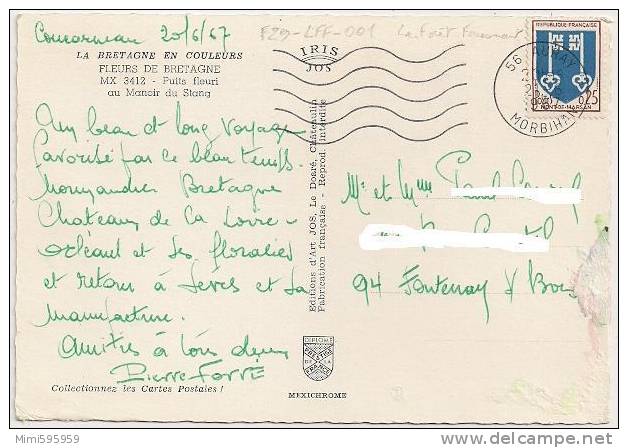 Concarneau 20/6/67
F29-LFF-001 La Forêt Fouesnant
LA BRETAGNE EN COULEURS
FLEURS DE BRETAGNE
MX 3412 - Puits fleuri
au Manoir du Stang
IRIS
JOS
REPUBLIQUE FRANÇAISE
0,25
MONT-DE-MARSAN
56 AURAY
MORBIHAN
Un beau et long voyage
favorisé par ce beau temps.
Normandie Bretagne
Chateaux de la Loire -
Orléans et ses floralies
et retour à Sèvres et sa
manufacture.
Amitiés à tous deux
Pierre FAVRE
Editions d'Art JOS, Le Doaré, Châteaulin
Fabrication française - Reprod. Interdite
Mr et Mme Paul
94 Fontenay s/ Bois
DIPLOME
MEXICHROME
Collectionnez les Cartes Postales !
Mimi595959
delcampe.net